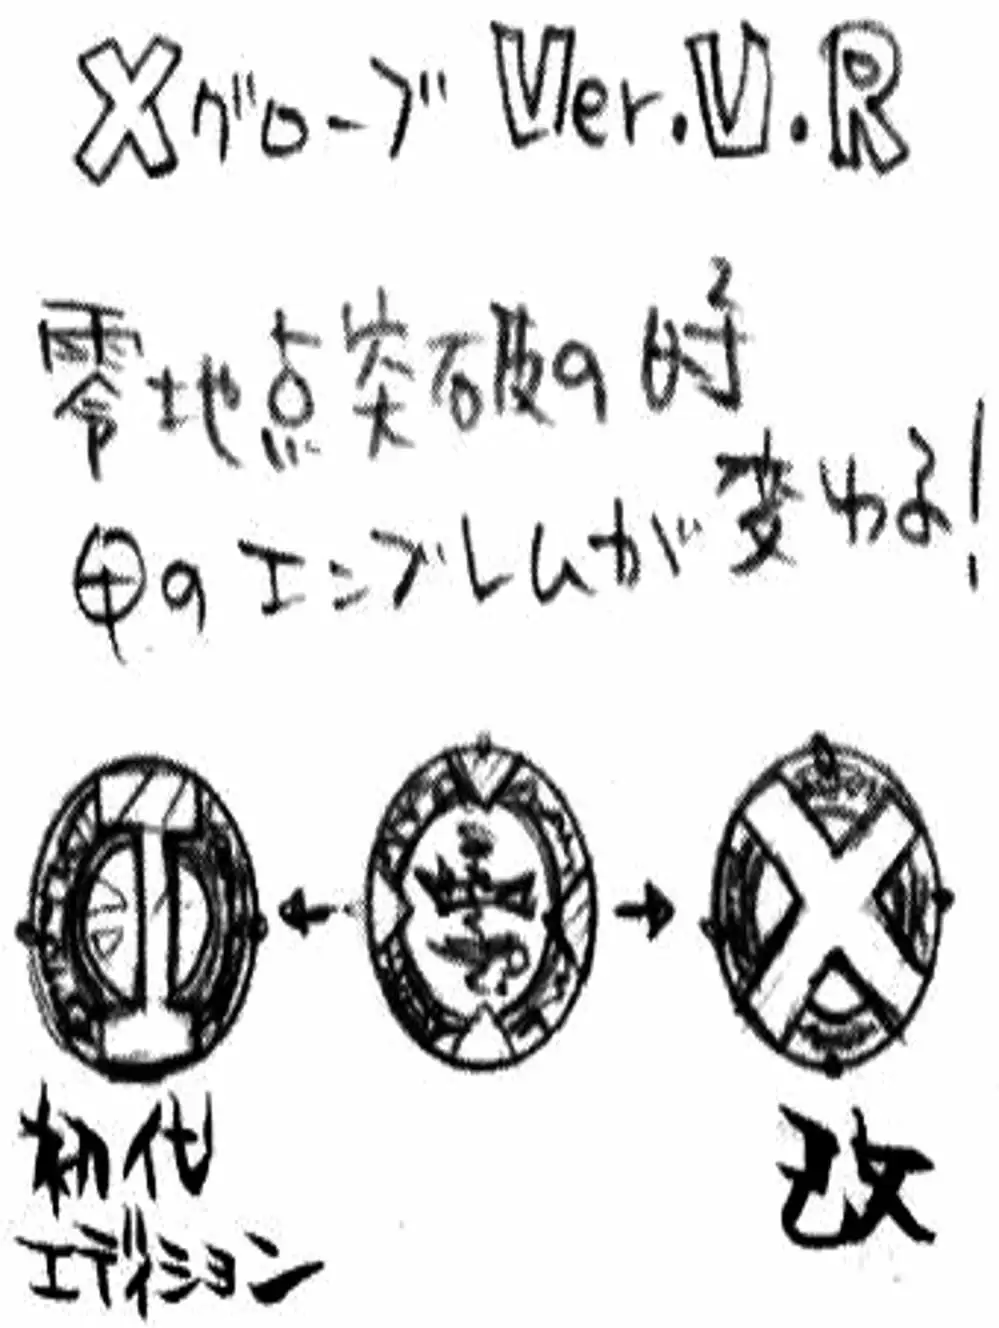 Xグローブ Ver.V.R
零地点突破の時
甲のエンブレムが変わる!
初代
エディション
改